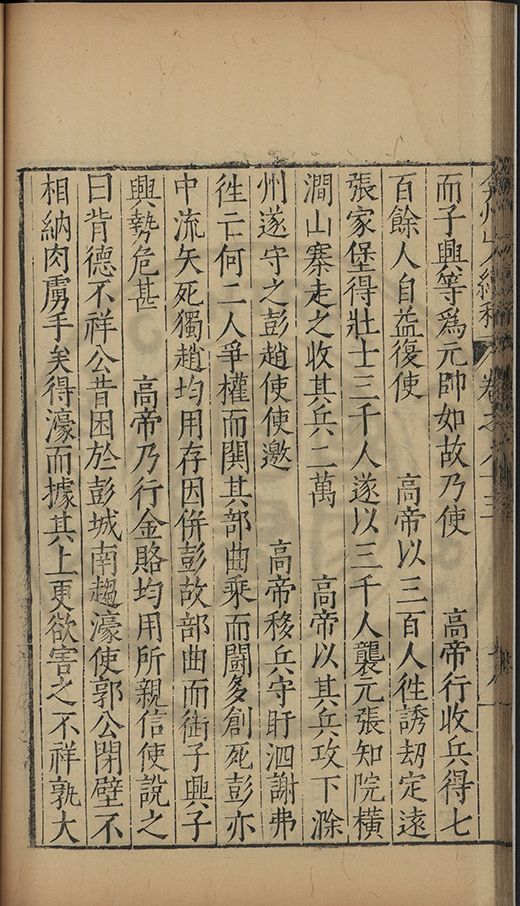 弇州山人續稿 卷之八十三
而子興等爲元帥如故乃使 高帝行收兵得七
百餘人自益復使 高帝以三百人徃誘刧定遠
張家堡得壯士三千人遂以三千人襲元張知院橫
澗山寨走之收其兵二萬 高帝以其兵攻下滁
州遂守之彭趙使使邀 高帝移兵守盱泗謝弗
徃亡何二人爭權而鬨其部曲乘而鬪多創死彭亦
中流矢死獨趙均用存因併彭故部曲而銜子興子
興勢危甚 高帝乃行金賂均用所親信使說之
曰背德不祥公昔困於彭城南趨濠使郭公閉壁不
相納肉虜手矣得濠而據其上更欲害之不祥孰大